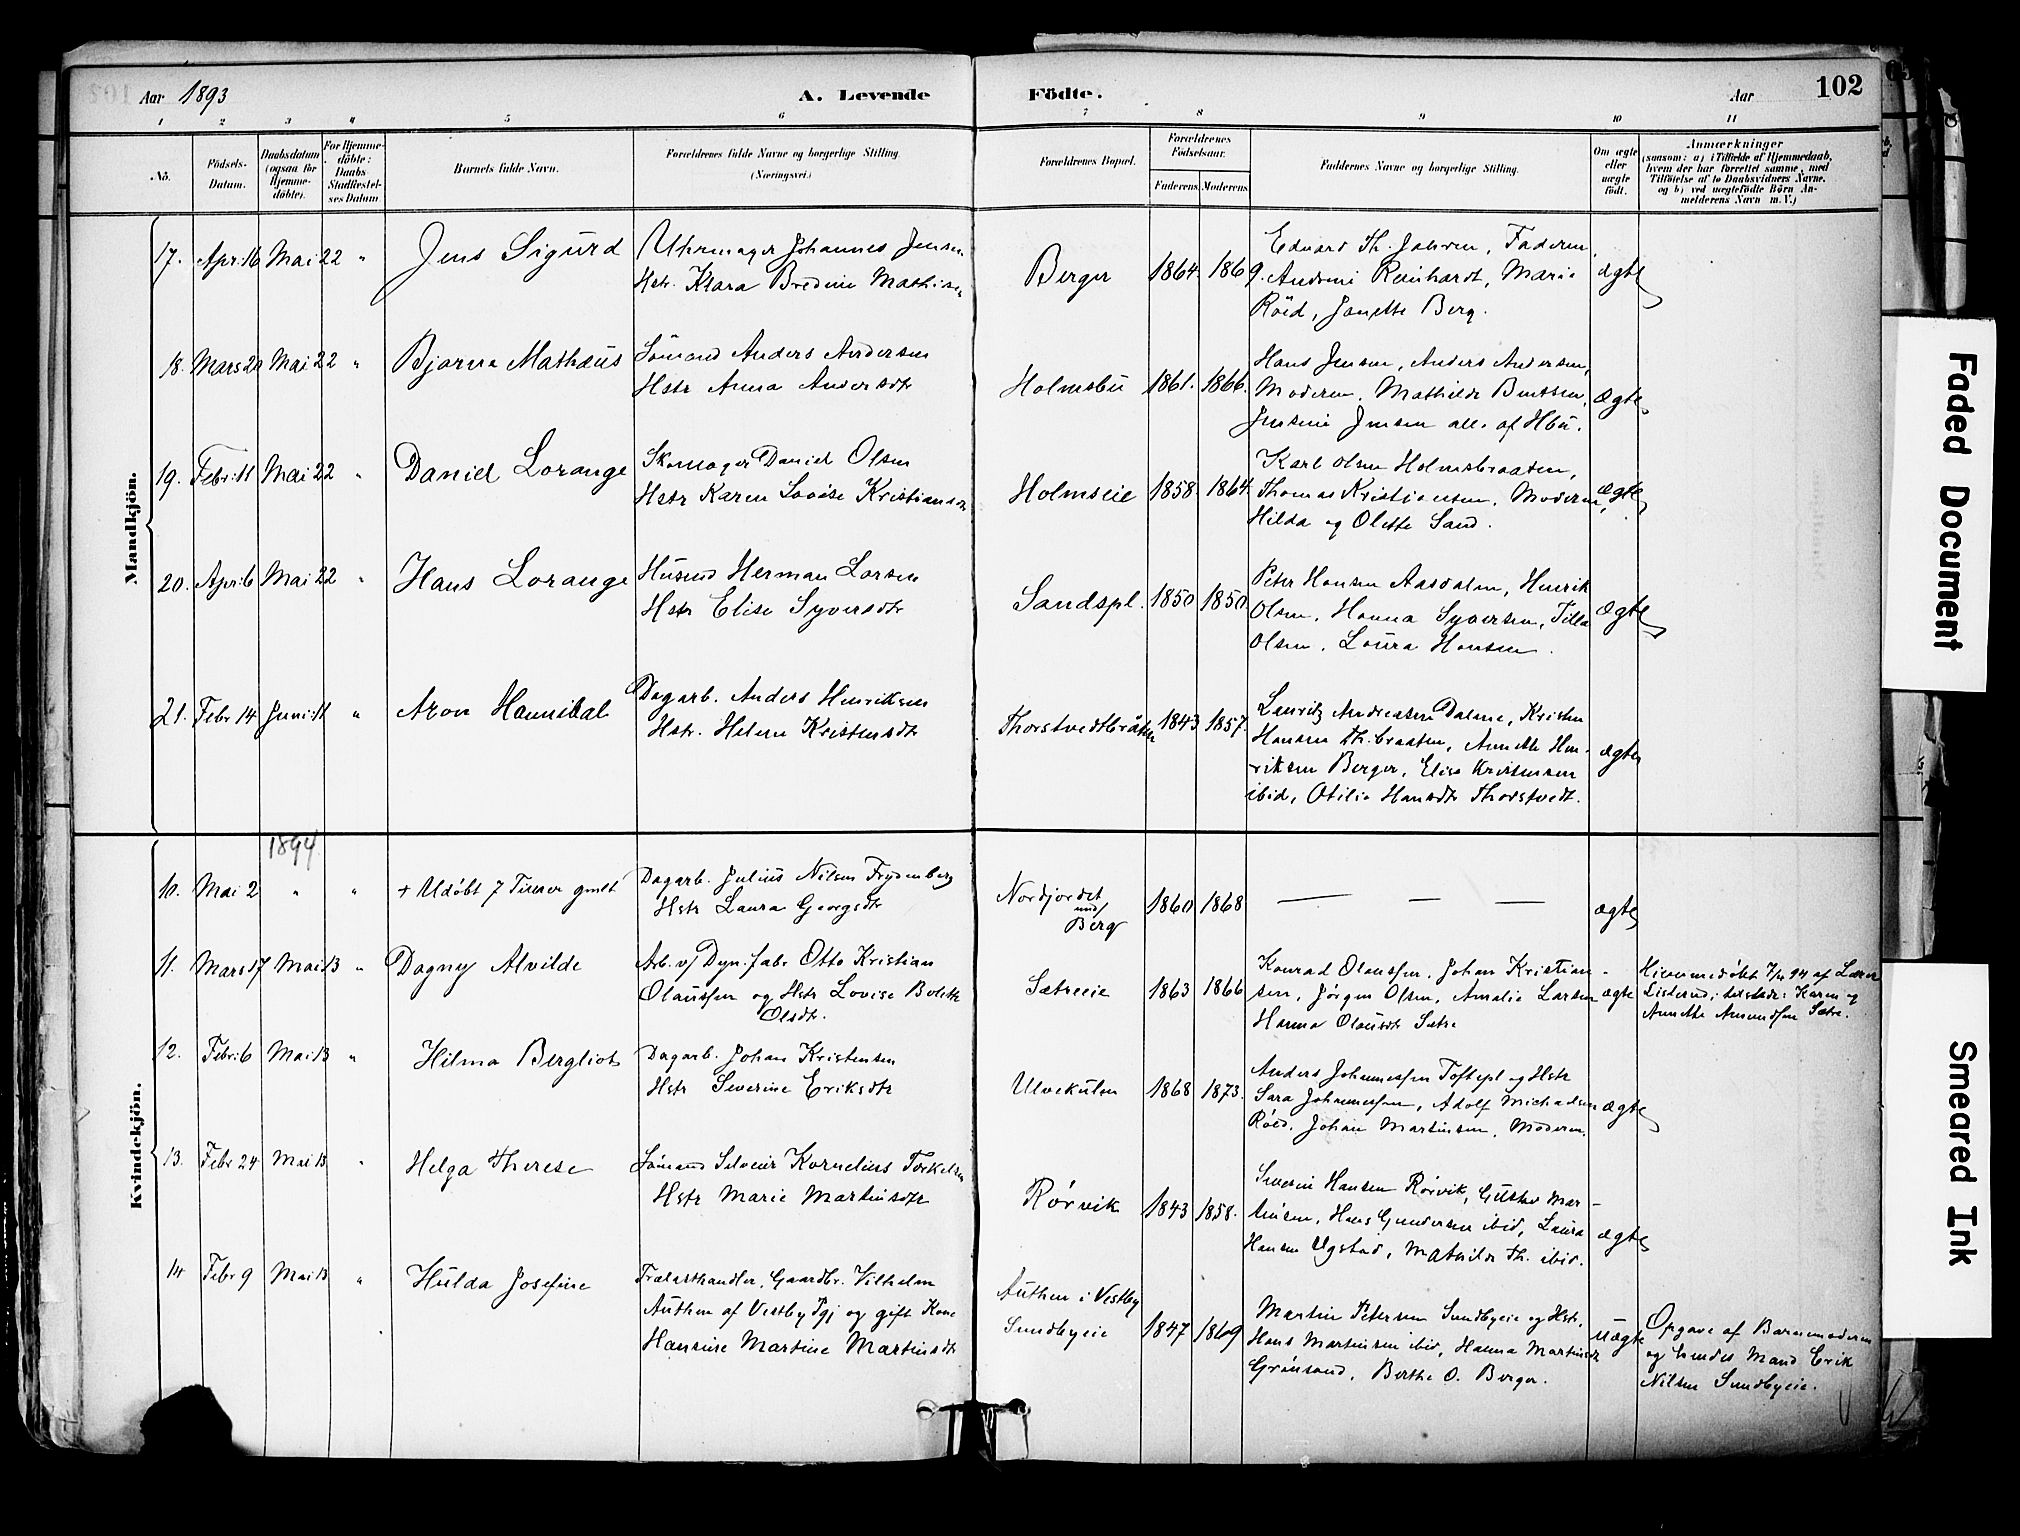 Aar 1893 A. Levende Födte. Aar 102
1 2 3 4 5 6 7 8 9 10 11
No. Födsels-Datum. Daabsdatum (ogsaa for Hjemmedöbte). For Hjemmedöbte: Daabs Stadfæstelses Datum Barnets fulde Navn. Forældrenes fulde Navne og borgerlige Stilling (Næringsvei.) Forældrenes Bopæl. Forældrenes Födselsaar. Faderens Moderens Faddernes Navne og borgerlige Stilling. Om ægte eller uægte födt. Anmærkninger (saasom: a) i Tilfælde af Hjemmedaab, hvem der har forrettet samme, med Tilföielse af to Daabsvidners Navne, og b) ved uægtefödte Börn Anmelderens Navn m. V.)
Mandkjön.
17. Apr: 16 Mai 22 " Jens Sigurd
Uhrmager Johannes Jensen
Hstr. Klara Bredine Mathisen
Berger 1864. 1869.
Edvard Th. Jahren, Faderen,
Andrine Reinhardt, Marie
Röed, Janette Berg.
ægte
18. Mars 20 Mai 22 " Bjarne Mathæus
Sömand Anders Andersen
Hstr Anna Andersdtr
Holmsbu 1861. 1866.
Hans Jensen, Anders Andersen,
Moderen, Mathilde Berntsen,
Jensine Jensen alle af Hbu.
Ægte
19. Febr: 11 Mai 22 " Daniel Lorange
Skomager Daniel Olsen
Hstr Karen Lovise Kristiansdtr
Holmseie 1858. 1864.
Karl Olsen Holmsbraaten,
Thomas Kristiansen, Moderen,
Hilda og Olette Sand.
Ægte
20. Apr: 6 Mai 22 " Hans Lorange
Husmd Herman Larsen
Hstr Elise Syversdtr
Sandspl. 1850 1850
Peter Hansen Aasdalen, Henrik
Olsen, Hanna Syversen, Tilla
Olsen, Laura Hansen.
Ægte
21. Febr 14 Juni 11 " Aron Hannibal
Dagarb. Anders Henriksen
Hstr. Helene Kristensdtr
Thorstvedtbråten 1843 1857.
Lauritz Andreasen Dalene, Kristen
Hansen Th.braaten, Annette Hen-
riksen Berger, Elise Kristensen
ibid, Otilie Hansdtr Thorstvedt.
ægte
1894
Kvindekjön.
10. Mai 2 " " + Udøbt 7 Timer gmlt
Dagarb. Julius Nilsen Frydenberg
Hstr Laura Georgsdtr
Nordjordet
und/
Berg
1860 1868
— — —
ægte
11. Mars 17 Mai 13 " Dagny Alvilde
Arb. v/ Dyn. fabr Otto Kristian
Olaussen og Hstr Lovise Bolette
Olsdtr.
Sætreeie 1863 1866
Konrad Olaussen, Johan Kristian-
sen, Jörgen Olsen, Amalie Larsen
Hanna Olausdtr Sætre
ægte
Hjemmedøbt af Lærer
Karen og
Annette Amundsen Sætre.
12. Febr: 6 Mai 13 " Hilma Bergliot
Dagarb. Johan Kristensen
Hstr Severine Eriksdtr
Ulvekulen 1868 1873.
Anders Johannessen Toftepl og Hstr
Sara Johannessen, Adolf Michaelsen
Röed, Johan Martinsen, Moderen.
ægte
13. Febr 24 Mai 13 " Helga Therese
Sömand Kornelius Torkelsen
Hstr Marie Martinsdtr
Rørvik 1843 1858.
Severin Hansen Rørvik, Gustav Mar-
tinsen, Hans Gundersen ibid, Laura
Hansen Ugstad, Mathilde Th. ibid.
ægte
14 Febr 9 Mai 13 " Hulda Josefine
Trælasthandler, Gaardbr. Vilhelm
Authen af Vestby Pgj og gift Kone
Hansine Martine Martinsdtr
Authen i Vestby
Sundbyeie 1847 1869
Martin Petersen Sundbyeie og Hstr,
Hans Martinsen ibid, Hanna Martinsdtr
Grönsand, Berthe O. Berger.
Uægte
Opgave af Barnemoderen
og hendes Mand Erik
Nilsen Sundbyeie.
Faded Document
Smeared Ink